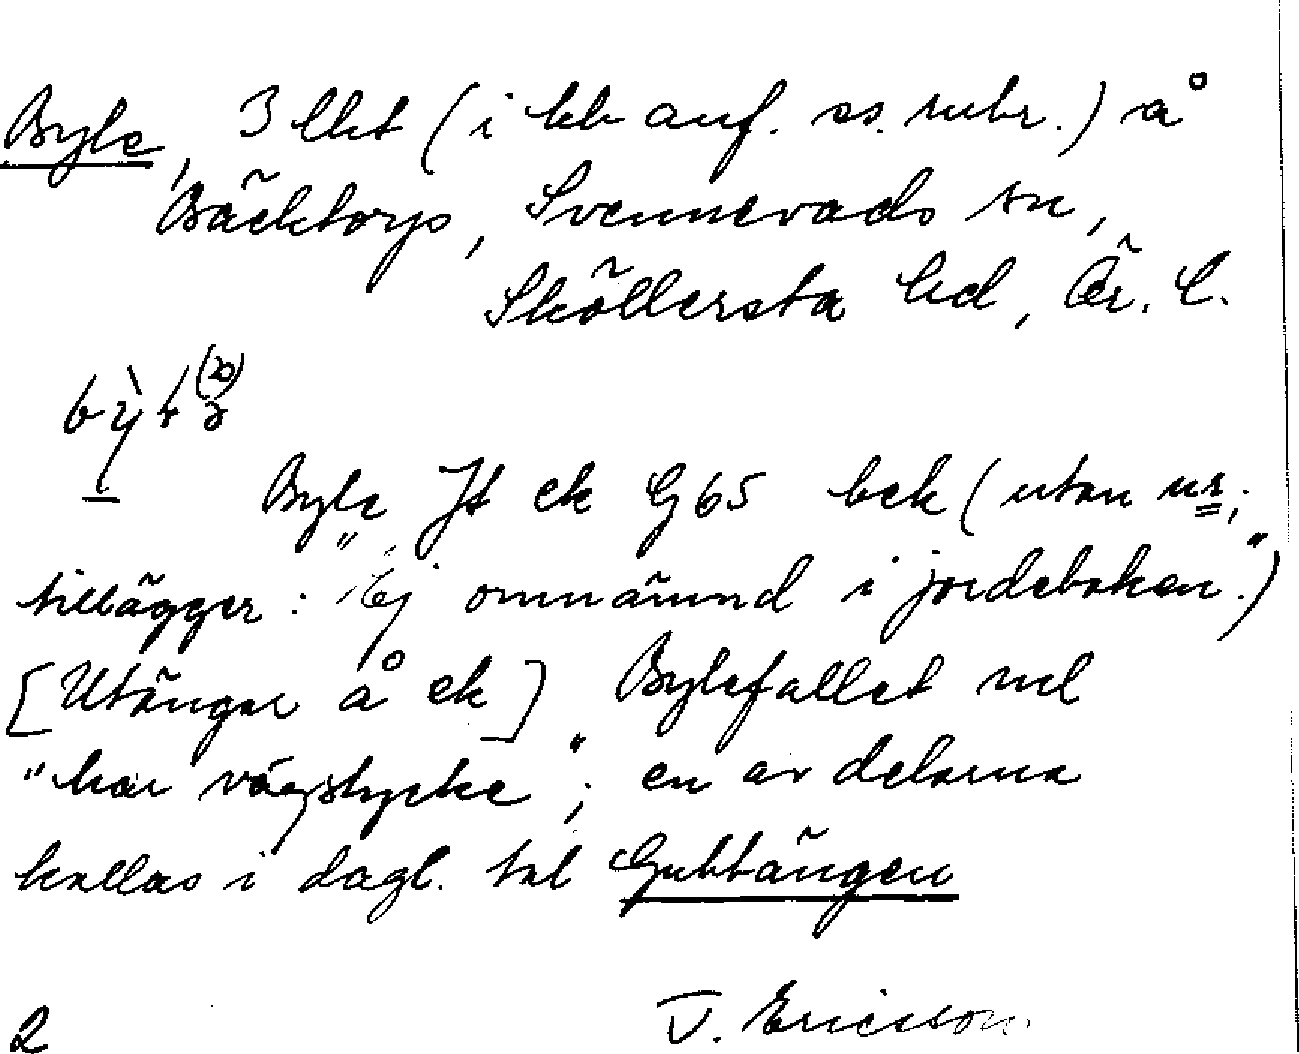 Byle, 3 lht (i kb anf. ss. rubr.) å
Bäcktorp, Svennevads sn,
Sköllersta hd, Ör. l.
Byle Jt ek G65 bek (utan nr;
tillägger: "Ej omnämnd i jordeboken".)
[Utängar å ek] Bylefallet ml
"har vägstycke"; en av delarna
kallas i dagl. tal Gubbängen
2 V. Ericsson